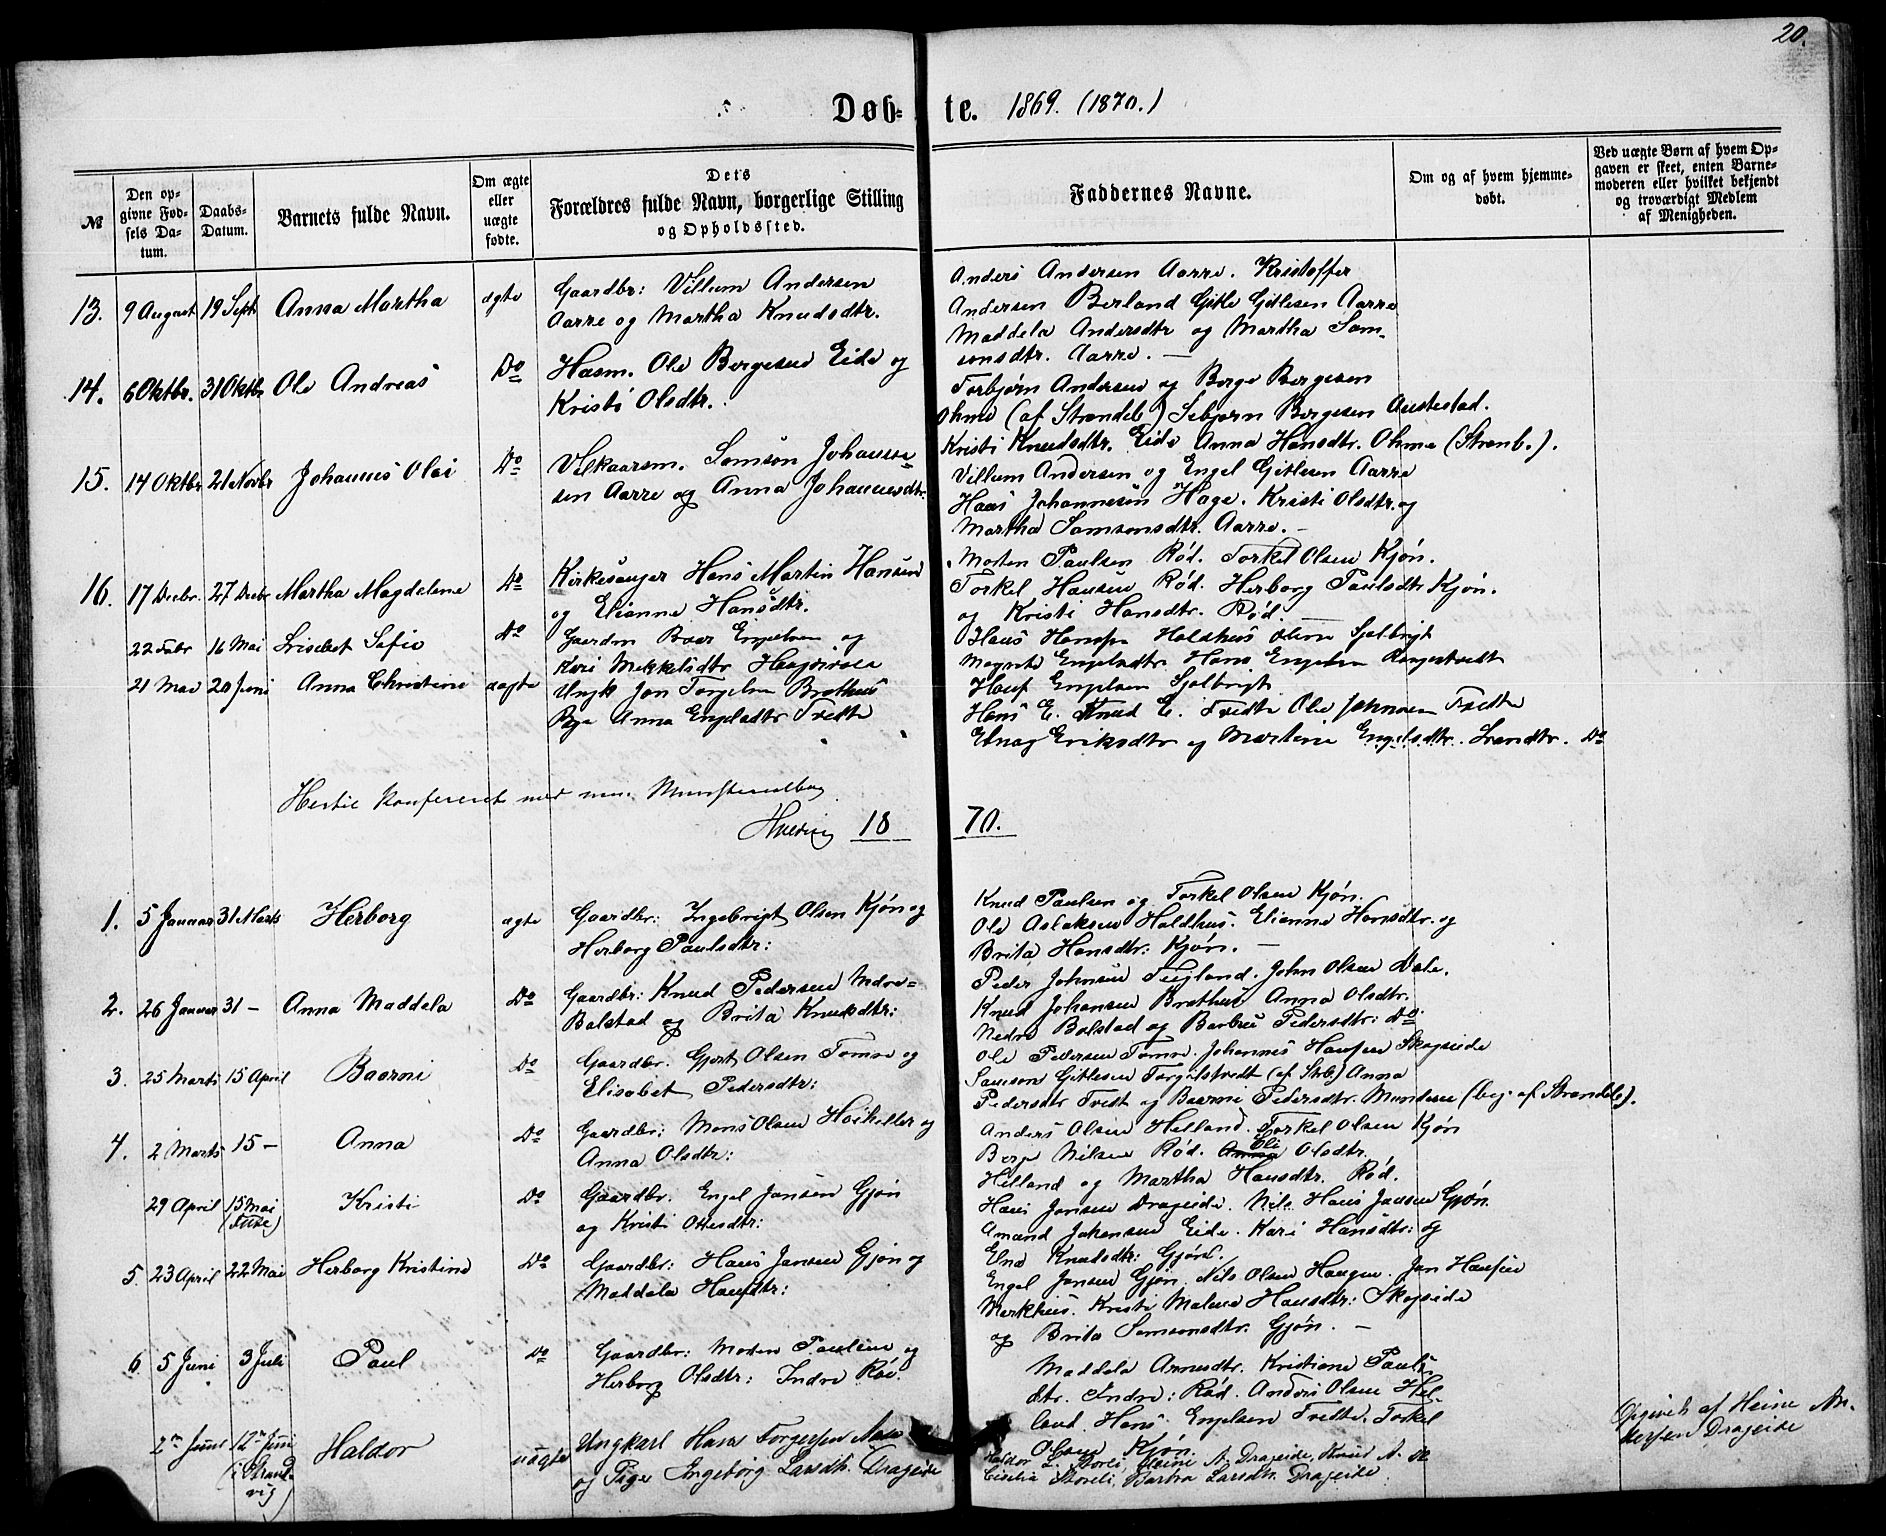 20.
Døbte. 1869. (1870.)
№
Den opgivne Fødsels Datum.
Daabs-Datum.
Barnets fulde Navn.
Om ægte eller uægte fødte.
Dets Forældres fulde Navn, borgerlige Stilling og Opholdssted.
Faddernes Navne.
Om og af hvem hjemmedøbt.
Ved uægte Børn af hvem Opgaven er skeet, enten Barnemoderen eller hvilket bekjendt og troværdigt Medlem af Menigheden.
13. 9 August 19 Sept. Anna Martha ægte Gaardbr: Villum Andersen
Aarre og Martha Knudsdtr.
Anders Andersen Aarre. Kristoffer
Andersen Berland Gitle Gitlesen Aarre
Maddela Andersdtr og Martha Sam-
sonsdtr. Aarre. —
14. 6 Oktbr. 31 Oktbr Ole Andreas Do Husm. Ole Bergesen Eide og
Kristi Olsdtr.
Torbjørn Andersen og Berge Bergesen
Ohme (af Strandeb.) Sebjørn Bergesen Austestad.
Kristi Knudsdtr. Eide Anna Hansdtr. Ohma (Stranb.).
15. 14 Oktbr 21 Novbr Johannes Olai Do Vilkaarsm. Samson Johanne-
sen Aarre og Anna Johannesdtr.
Villum Andersen og Engel Gitlesen Aarre
Hans Johannesen Hage. Kristi Olsdtr. og
Martha Samsonsdtr. Aarre. —
16. 17 Decbr. 27 Decbr Martha Magdelene Do Kirkesanger Hans Martin Hansen
og Elianna Hansdtr.
Morten Paulsen Rød. Torkel Olsen Kjøn.
Torkel Hansen Rød. Herborg Paulsdtr Kjøn.
og Kristi Hansdtr. Rød.
22 Febr 16 Mai Sofie Do Engelsen og
Kari Mikkelsdtr
Hans
Magrete Engelsdtr. Hans Engelsen
Engelsen
21 Mai 20 Juni Anna Christine uægte Ungk Jon Torgelsen Brothus
Pge Anna Engelsdtr Tvedte
Hans E. Knud E. Tvedte Ole Johnsen Tvedte
Eriksdtr og Martine Engelsdtr. Do
Hertil konfereret med min Ministerialbog
18 70.
1. 5 Januar 31 Marts Herborg ægte Gaardbr: Ingebrigt Olsen Kjøn og
Herborg Paulsdtr:
Knud Paulsen og Torkel Olsen Kjøn.
Ole Aslaksen Holdhus. Elianne Hansdtr. og
Brita Hansdtr: Kjøn. —
2. 26 Januar 31 — Anna Maddela Do Gaardbr: Knud Pedersen Nedre-
Bolstad og Brita Knudsdtr:
Peder Johnsen Teigland. John Olsen Dale.
Knud Johansen Brothus Anna Olsdtr.
Nedre Bolstad og Barbru Pedersdtr: do.
3. 25 Marts 15 April Baorni Do Gaardbr. Gjert Olsen Tomre og
Elisabet Pedersdtr:
Ole Pedersen Tomre. Johannes Hansen Skogseide
Samson Gitlesen Torgilstvedt (af Strb.) Anna
Pedersdtr Tvedt og Baorni Pedersdtr. (beg. af Strandeb.).
4. 2 Marts 15 — Anna Do Gaardbr: Mons Olsen Hoikeller og
Anna Olsdtr:
Anders Olsen Helland. Torkel Olsen Kjøn
Berge Nilsen Rød. Eli Olsdtr.
Helland og Martha Hansdtr. Rød.
29 April 15 Mai (Fuse) Kristi Do Gaardbr. Engel Jansen Gjøn
og Kristi Olsdtr:
Hans Jansen Drageide. Nils Hans Jansen Gjøn
Amund Johansen Eide. Kari Hansdtr: og
Knudsdtr: Gjøn.
5. 23 April 22 Mai Herborg Kristine Do Gaardbr: Hans Jansen Gjøn og
Maddela Hansdtr:
Engel Jansen Gjøn. Nils Olsen Haugen. Jan Hansen
Merkhus. Kristi Malene Hansdtr: Skogseide
og Brita Samsonsdtr. Gjøn. —
6 5 Juni 3 Juli Paul Do Gaardbr: Morten Paulsen og
Herborg Olsdtr: Indre Rød.
Maddela Arnesdtr. Kristiane Pauls-
dtr. Indre: Rød. Anders Olsen Hel-
land. Hans Engelsen Tvedte. Torkel
Olsen Kjøn.
2en Juni 12te Juni (i Strand-
vig) Haldor uægte Ungkarl Hans Torgersen
og Pige Ingebørg Larsdtr. Drageide
Haldor L. Storli, Heine A. Drageide, Knud A.
Cecilia Storeli, Bartha Larsdtr. Drageide.
Opgivet af Heine An-
dersen Drageide